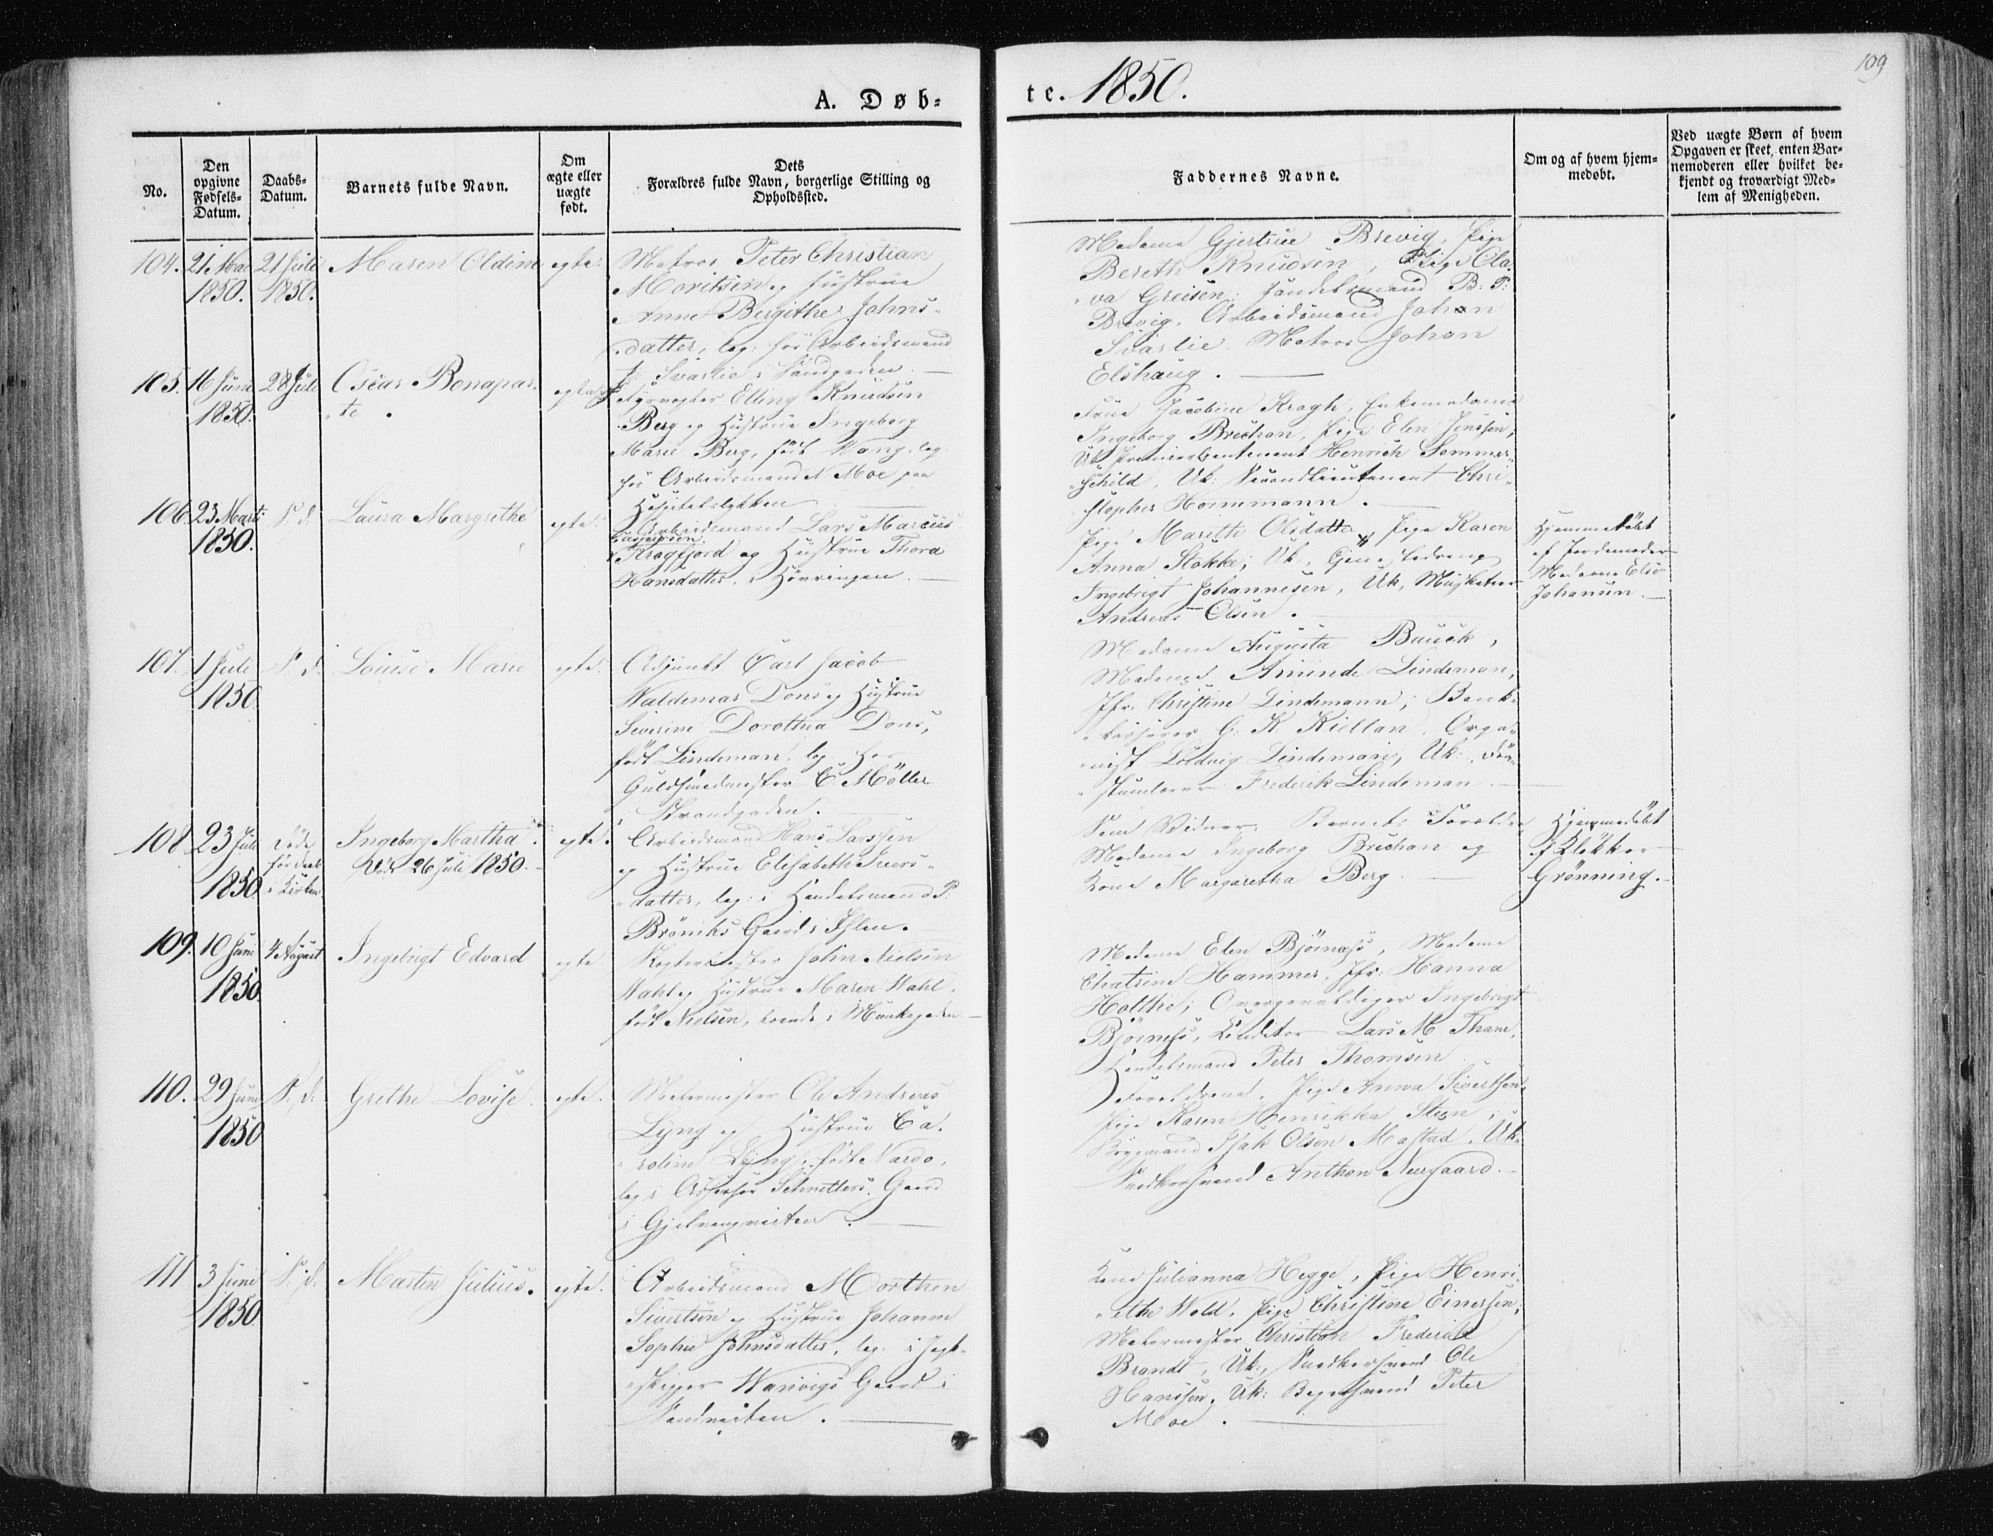 109
A. Døb-
te. 1850.
No.
Den
opgivne
Fødsels-
Datum.
Daabs-
Datum.
Barnets fulde Navn.
Om
ægte eller
uægte
født.
Dets
Forældres fulde Navn, borgerlige Stilling og
Opholdssted.
Faddernes Navne.
Om og af hvem hjem-
medøbt.
Ved uægte Børn af hvem
Opgaven er skeet, enten Bar-
nemoderen eller hvilket be-
kjendt og troværdigt Med-
lem af Menigheden.
104. 21 Mai
1850.
21 Juli
1850.
Maren Oldine
egte.
Matros Peter Christian
Moritsen og Hustrue
Anne Bergithe Johns-
datter, log: hos Arbeidsmand
J. Svarlie i Sandgaden.
Madame Gjertrue Brevig, Pige
Bereth Knudsen, Pige Ola-
va Greisen, Handelsmand B: P:
Brevig, Arbeidsmand Johan
Svarlie, Matros Johan
Elshaug.
105. 16 Juni
1850.
28 Juli
Oscar Bonapar-
te.
egte
Elling Knudsen
Berg og Hustrue Ingeborg
Marie Berg, født Wang, log
hos Arbeidsmand Moe paa
Hospitalsløkken
Frue Jacobine Kragh, Enkemadame
Ingeborg Brechan, Pige Elen Jenssen,
Uk. Premierlieutenant Henrich Sommer-
schild, Uk: Secondlieutenant Chri-
stopher Hornemann.
106. 23 Marts
1850.
S. d.
Laura Margrethe
egte.
Arbeidsmand Lars Marcus
Kragfjord og Hustrue Thora
Hansdatter, i Hevringen.
Pige Mareth Olsdatter, Pige Karen
Anna Stokke, Uk,
Ingebrigt Johannesen, Uk, Musketeer
Andreas Olsen.
Hjemmedøbt
af Jordemoder
Madame Else
Johansen.
107. 1 Juli
1850
S. d.
Louise Marie
egte.
Adjunkt Carl Jacob
Waldemar Dons og Hustrue
Severine Dorothea Dons,
født Lindeman, log hos
Guldsmedmester C. Möller
Strandgaden.
Madame Augusta Buuck,
Madame Aminde Lindeman,
Jfr. Christine Lindemann, Bank-
kasserer G. K. Kiellan, Orga-
nist Ludvig Lindeman, Uk.
Frederik Lindeman
108. 23 Juli
1850.
Døde
før Daab
i Kirken
Ingeborg Martha.
Død 26 Juli 1850.
egte.
Arbeidsmand Hans Larssen
og Hustrue Elisabeth Ivers-
datter, log: i Handelsmand P.
Brøniks Gaard i Ihlen.
Som Vidner: Barnets Forældre
Madame Ingeborg Brechan og
Kone Margaretha Berg.
Hjemmedøbt
af Klokker
Grønning.
109. 10 Juni
1850.
4 August
Ingebrigt Edvard
egte.
John Nielsen
Wahl og Hustrue Maren Wahl,
født Nielsen, boende i Munkegaden
Madame Elen Bjørnæs, Madame
Chatrine Hammer, Jfr. Hanna
Holthe, Ingebrigt
Bjørnæs, Konditor Lars M. Thane,
Handelsmand Peter Thomsen
110. 29 Juni
1850
S. d.
Grethe Lovise.
egte.
Malermester Ole Andreas
Lyng og Hustrue Ca-
roline Lyng, født Nardo,
log i Assessor Schnitlers Gaard
i Gjelvangveiten.
Forældrene, Pige Anna Sivertsen,
Pige Karen Henrikka Steen,
Isak Olsen Mastad, Uk.
Snedkersvend Anthon Nersgaard.
111 3 Juni
1850
S. d.
Martin Julius.
egte.
Arbeidsmand Morthen
Sivertsen og Hustrue Johanne
Sophie Johnsdatter, log: i Jagt-
skipper Warvigs Gaard i
Sandveiten.
Kone Julianna Hegge, Pige Henri-
ethe Wold, Pige Christine Einersen,
Malermester Christian Frederik
Brandt, Uk., Snedkersvend Ole
Hanssen, Uk: Bagersvend Peter
Moe.